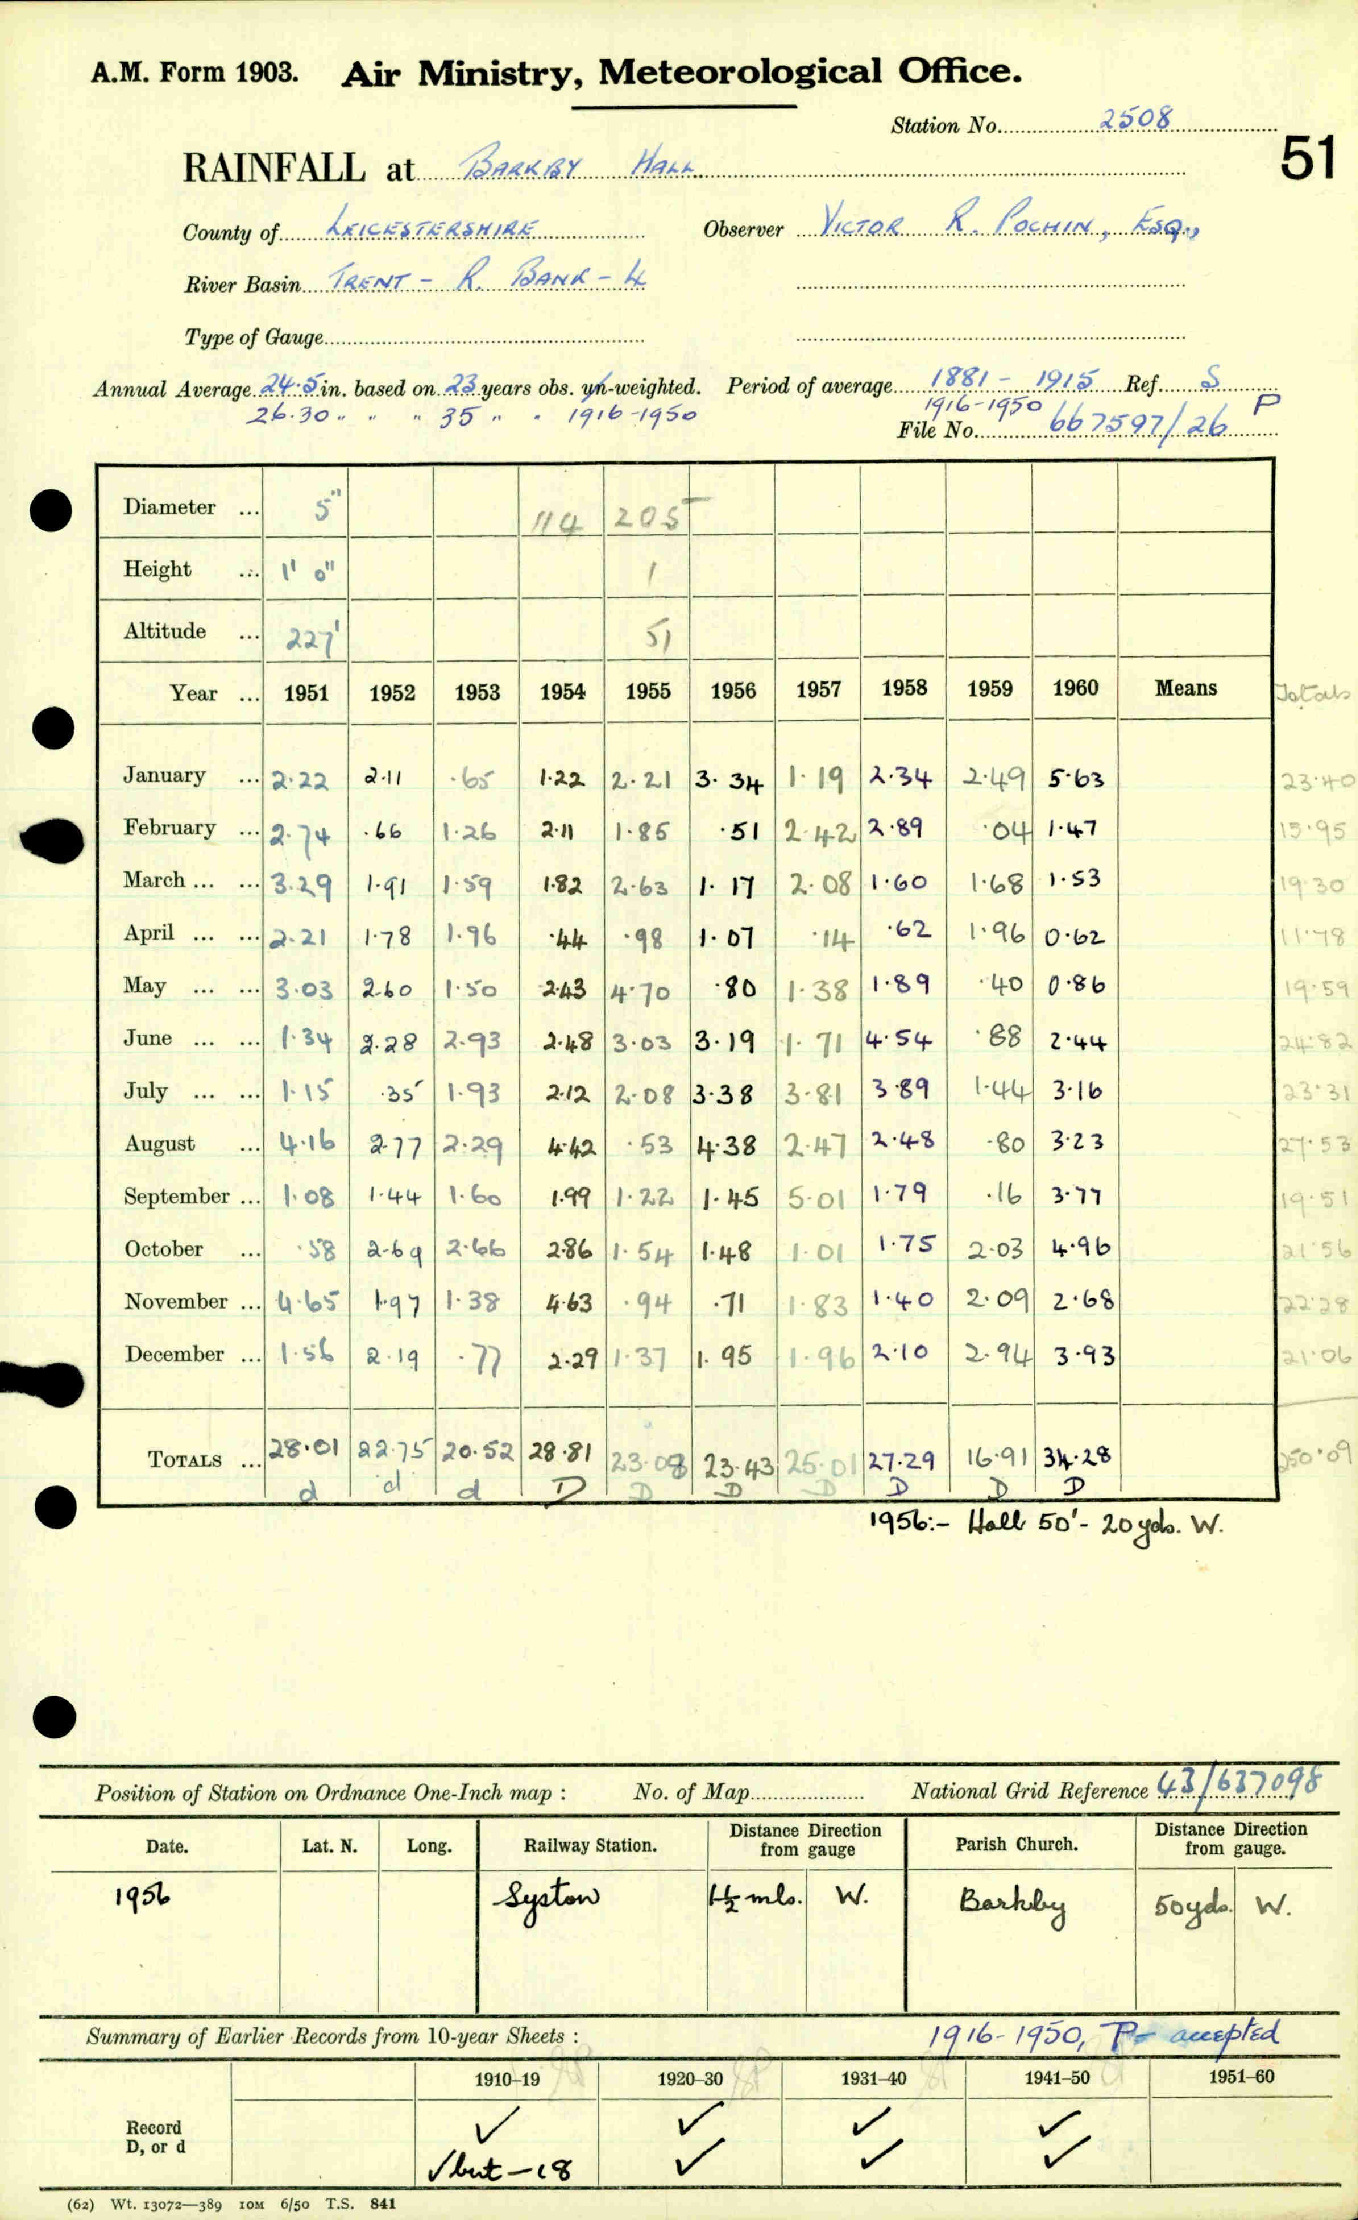 A.M. Form 1903. Air Ministry, Meteorological Office.
Station No. 2508
51
RAINFALL at BARKBY HALL
County of LEICESTERSHIRE Observer VICTOR R. POCHIN, ESQ.,
River Basin TRENT - R. BANK - 4
Type of Gauge
Annual Average 24.5 in. based on 23 years obs. un-weighted. Period of average 1881 - 1915 Ref. S
26.30 " " " 35 " " 1916-1950 1916-1950 P
File No. 667597/26
Diameter ... 5" 114 205
Height ... 1' 0" 1
Altitude ... 227' 51
Year ... 1951 1952 1953 1954 1955 1956 1957 1958 1959 1960 Means Totals
January ... 2.22 2.11 .65 1.22 2.21 3.34 1.19 2.34 2.49 5.63 23.40
February ... 2.74 .66 1.26 2.11 1.85 .51 2.42 2.89 .04 1.47 15.95
March ... ... 3.29 1.91 1.59 1.82 2.63 1.17 2.08 1.60 1.68 1.53 19.30
April ... ... 2.21 1.78 1.96 .44 .98 1.07 .14 .62 1.96 0.62 11.78
May ... ... 3.03 2.60 1.50 2.43 4.70 .80 1.38 1.89 .40 0.86 19.59
June ... ... 1.34 2.28 2.93 2.48 3.03 3.19 1.71 4.54 .88 2.44 24.82
July ... ... 1.15 .35 1.93 2.12 2.08 3.38 3.81 3.89 1.44 3.16 23.31
August ... 4.16 2.77 2.29 4.42 .53 4.38 2.47 2.48 .80 3.23 27.53
September ... 1.08 1.44 1.60 1.99 1.22 1.45 5.01 1.79 .16 3.77 19.51
October ... .58 2.69 2.66 2.86 1.54 1.48 1.01 1.75 2.03 4.96 21.56
November ... 4.65 1.97 1.38 4.63 .94 .71 1.83 1.40 2.09 2.68 22.28
December ... 1.56 2.19 .77 2.29 1.37 1.95 1.96 2.10 2.94 3.93 21.06
TOTALS ... 28.01 22.75 20.52 28.81 23.08 23.43 25.01 27.29 16.91 34.28 250.09
d d d D D D D D D D
1956:- Hall 50' - 20 yds. W.
Position of Station on Ordnance One-Inch map : No. of Map National Grid Reference 43/637098
Date. Lat. N. Long. Railway Station. Distance Direction from gauge Parish Church. Distance Direction from gauge.
1956 Syston 1½ mls. W. Barkby 50 yds. W.
Summary of Earlier Records from 10-year Sheets : 1916-1950, P- accepted
1910–19 1920–30 1931–40 1941–50 1951–60
Record ✓ ✓ ✓ ✓
D, or d ✓ but -18 ✓ ✓ ✓
(62) Wt. 13072—389 10M 6/50 T.S. 841